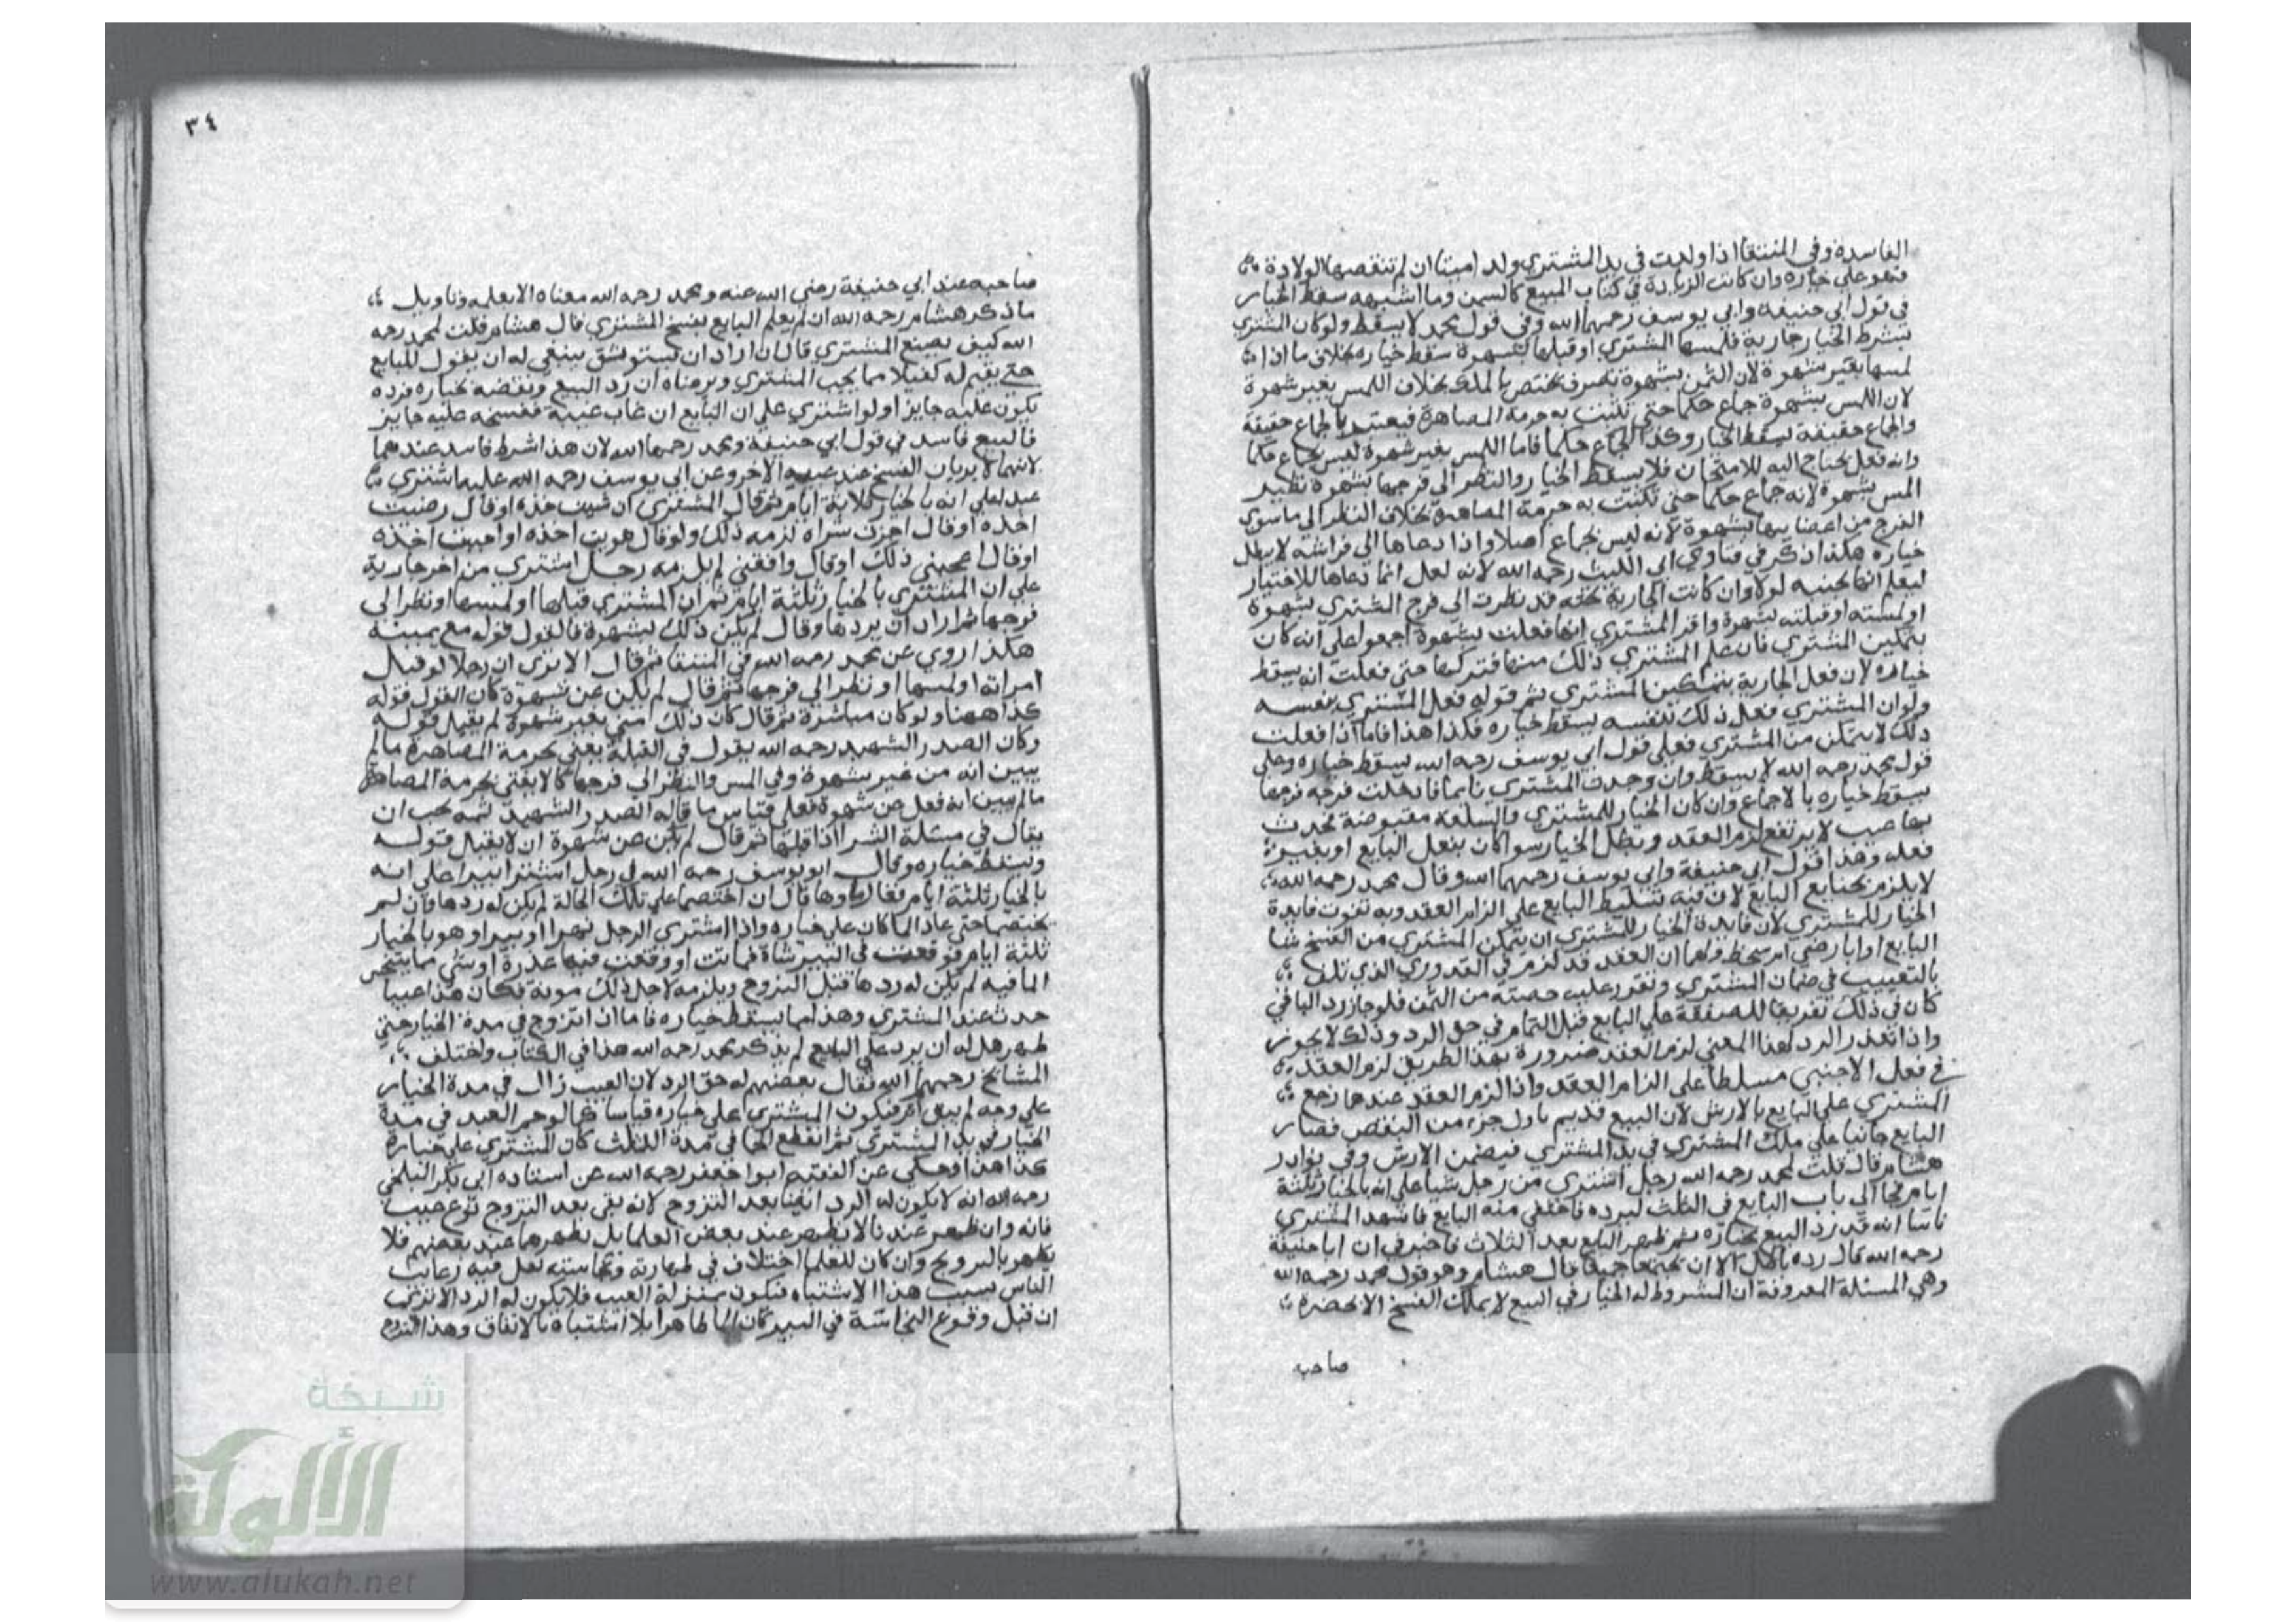 الفاسدة وفي المنتقا اذا ولدت في يد المشتري ولدا ميتا ان لم تنقصها الولادة
فهو على خياره وان كانت الزيادة في كتاب المبيع كالسمن وما اشبهه سقط الخيار
في قول ابي حنيفة وابي يوسف رحمهما الله وفي قول محمد لا يسقط ولو كان المشتري
بشرط الخيار جارية فلمسها المشتري او قبلها بشهوة سقط خياره بخلاف ما اذا
لمسها بغير شهوة لان بشهوة تصرف يختص بالملك بخلاف اللمس بغير شهوة
لان اللمس بشهوة جماع حكما حتى تثبت به حرمة المصاهرة فيعتبر بالجماع حقيقة
والجماع حقيقة يسقط الخيار وكذا الجماع حكما فاما اللمس بغير شهوة ليس بجماع حكما
وانه فعل يحتاج اليه للامتحان فلا يسقط الخيار والنظر الى فرجها بشهوة نظير
المس بشهوة لانه جماع حكما حتى تثبت به حرمة المصاهرة بخلاف النظر الى ما سوى
الفرج من اعضايها بشهوة لانه ليس بجماع اصلا واذا دعاها الى فراشه لا يبطل
خياره هكذا ذكر في فتاوي ابي الليث رحمه الله لانه لعل انما دعاها للاختبار
ليعلم انها تحبه لو لا وان كانت الجارية قد نظرت الى فرج المشتري بشهوة
او لمسته او قبلته بشهوة واقر المشتري انها فعلت بشهوة اجمعوا على انه كان
بتمكين المشتري فان علم المشتري ذلك منها فتركها حتى فعلت انه يسقط
خياره لان فعل الجارية بتمكين المشتري فعل المشتري بنفسه
ولو ان المشتري فعل ذلك بنفسه يسقط خياره فكذا هذا فاما اذا فعلت
ذلك لا بتمكن من المشتري فعلى قول ابي يوسف رحمه الله يسقط خياره وعلى
قول محمد رحمه الله لا يسقط وان وجدت المشتري نايما فادخلت فرجه فرجها
يسقط خياره بالاجماع وان كان الخيار للمشتري والسلعة مقبوضة فحدث
بها عيب لا يرتفع لزم العقد وبطل الخيار سوا كان بفعل البايع او بغير
فعله وهذا قول ابي حنيفة وابي يوسف رحمهما الله وقال محمد رحمه الله
لا يلزم البايع لان فيه تسليط البايع على الزام العقد وبه تفوت فايدة
الخيار للمشتري لان فايدة الخيار للمشتري ان يتمكن المشتري من الفسخ شا
البايع او ابا رضي ام سخط ولهما ان العقد قد لزم في القدر الذي تلف
بالتعييب في ضمان المشتري وتقرر عليه حصته من الثمن فلو جاز رد الباقي
كان في ذلك تفريقا للصفقة على البايع قبل التمام في حق الرد وذلك لا يجوز
واذا تعذر الرد لهذا المعنى لزم العقد ضرورة بهذا الطريق لزم العقد
في فعل الاجنبي مسلطا على الزام العقد واذا لزم العقد عندهما رجع
المشتري على البايع بالارش لان البيع قديم باول جزء من النقص فصار
البايع جانيا على ملك المشتري في يد المشتري فيضمن الارش وفي نوادر
هشام قال قلت لمحمد رحمه الله رجل اشترى من رجل شيا على انه بالخيار ثلثة
ايام فجا الى باب البايع في الثلث ليرده فاختفى منه البايع فاشهد المشتري
ناسا انه قد رد البيع بخياره ثم ظهر البايع بعد الثلاث فاخبرني ان ابا حنيفة
رحمه الله قال رده باطل الا ان يجتمعا جميعا قال هشام وهو قول محمد رحمه الله
وهي المسئلة المعروفة ان المشروط له الخيار في البيع لا يملك الفسخ الا بحضرة
صاحبه
٣٤
صاحبه عند ابي حنيفة رضي الله عنه ومحمد رحمه الله معناه الا بعلمه وتاويل
ما ذكر هشام رحمه الله ان لم يعلم البايع بفسخ المشتري قال هشام قلت لمحمد رحمه
الله كيف يصنع المشتري قال ان اراد ان يستوثق ينبغي له ان يقول للبايع
حتى يقيم له كفيلا مما يجب المشتري ويرضاه ان رد البيع ونقضه بخياره فرده
يكون عليه جايزا ولو اشترى على ان البايع ان غاب غيبة ففسخه عليه جايز
فالبيع فاسد في قول ابي حنيفة ومحمد رحمهما الله لان هذا شرط فاسد عندهما
لانهما لا يريان الفسخ عند غيبة الاخر وعن ابي يوسف رحمه الله اشترى
عبدا على انه بالخيار ثلاثة ايام ثم قال المشتري ان شيت خذه او قال رضيت
اخذه او قال اجزت شراه لزمه ذلك ولو قال هويت اخذه او احببت اخذه
او قال اعجبني ذلك او قال وافقني لم يلزمه رجل اشترى من اخر جارية
على ان المشتري بالخيار ثلثة ايام ثم ان المشتري قبلها او لمسها او نظر الى
فرجها ثم اراد ان يردها وقال لم يكن ذلك بشهوة فالقول قوله مع يمينه
هكذا روي عن محمد رحمه الله في المنتقا ثم قال الا ترى ان رجلا لو قبل
امراته او لمسها او نظر الى فرجها ثم قال لم يكن عن شهوة كان القول قوله
كذا ههنا ولو كان مباشرة ثم قال كان ذلك مني بغير شهوة لم يقبل قوله
وكان الصدر الشهيد رحمه الله يقول في القبلة يفتى بحرمة المصاهرة ما لم
يبين انه من غير شهوة وفي المس والنظر الى فرجها كا لا يفتى بحرمة المصاهرة
ما لم يبين انه فعل عن شهوة فعلى قياس ما قاله الصدر الشهيد ثمه يجب ان
يقال في مسئلة الشرا اذا قبلها ثم قال لم يكن عن شهوة ان لا يقبل قوله
ويسقط خياره وقال ابو يوسف رحمه الله في رجل اشترا بيرا على انه
بالخيار ثلثة ايام فغار ماوها قال ان اختصما على تلك الحالة لم يكن له ردها وان لم
يختصما حتى عاد الما كان على خياره واذا اشترى الرجل نهرا او بيرا وهو بالخيار
ثلثة ايام فوقعت في البير شاة فماتت او وقعت فيها عذرة او شي مما يتنجس
الما فيه لم يكن له ردها قبل النزوح ويلزمه لاجل ذلك مونة فكان هذا عيبا
حدث عند المشتري وهذا مما يسقط خياره فاما ان انتزوح في مدة الخيار حتى
طهر هل له ان يرد على البايع لم يذكر محمد رحمه الله هذا في الكتاب واختلف
المشايخ رحمهم الله فقال بعضهم له حق الرد لان العيب زال في مدة الخيار
على وجه لم يبق اثر فيكون المشتري على خياره قياسا على ما لو حم العبد في مدة
الخيار في يد المشتري ثم انقطع الحما في مدة الثلث كان المشتري على خياره
كذا هذا وحكي عن الفقيه ابوا جعفر رحمه الله عن استاده ابي بكر البلخي
رحمه الله انه لا يكون له الرد ايضا بعد النزوح لانه بقي بعد النزوح نوع عيب
فانه وان ظهر عندنا لا نطهر عند بعض العلما بل نطهرها عند بعضهم فلا
يطهر وان كان للعلما اختلاف في طهارته ونجاسته تقل فيه رغايب
الناس بسبب هذا الاشتباه فيكون بمنزلة العيب فلا يكون له الرد الا ترى
ان قبل وقوع النجاسة في البير كان الما طاهرا بلا اشتباه بالاتفاق وهذا
شبكة
الألوكة
www.alukah.net